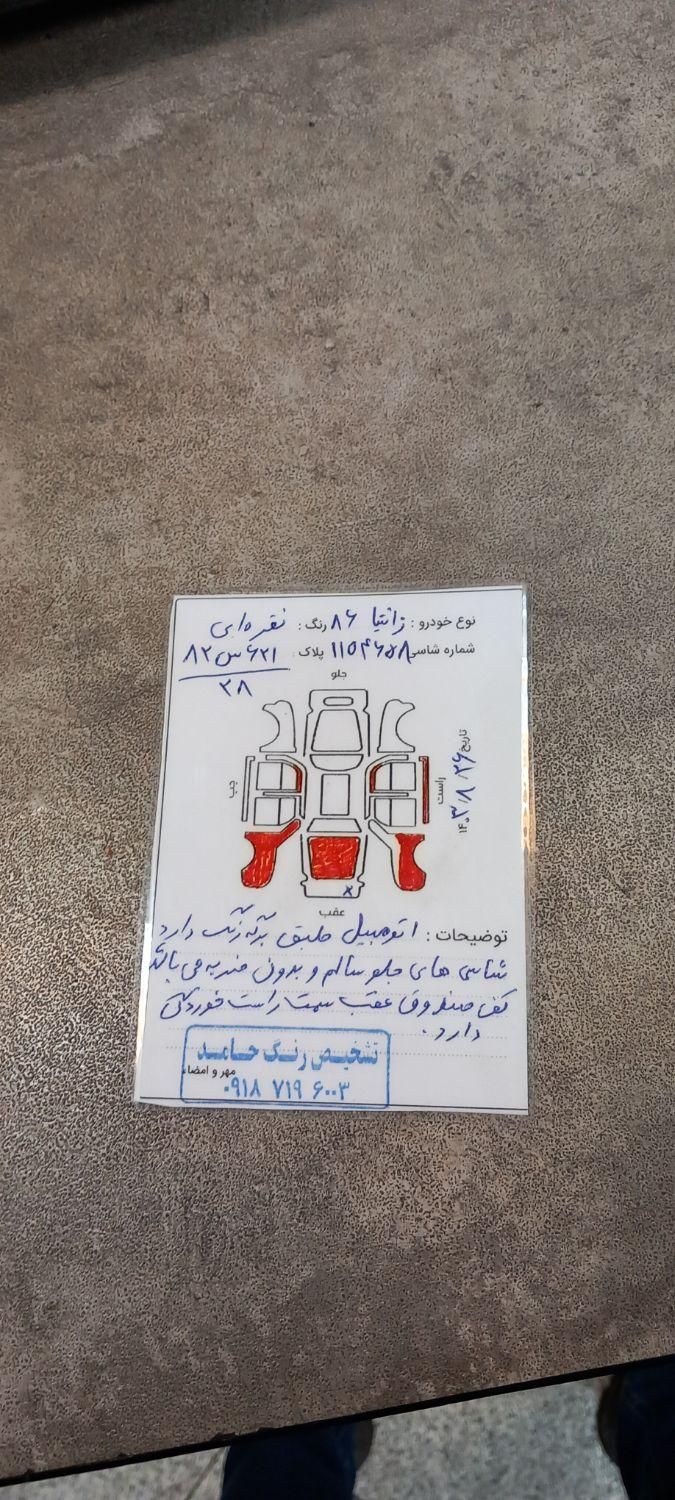 نوع خودرو : زانتیا ۸۶ رنگ : نقره‌ای
شماره شاسی ۱۱۵۴۶۵۸ پلاک : ۸۲ س ۶۲۱
۲۸
جلو
تاریخ ۱۴۰۳/۸/۲۶
راست
چپ
عقب
توضیحات : اتومبیل طبق برگه رنگ دارد
شاسی های جلو سالم و بدون ضربه می باشد
کف صندوق عقب سمت راست خوردگی
دارد.
تشخیص رنگ حامد
مهر و امضاء
۰۹۱۸ ۷۱۹ ۶۰۰۳